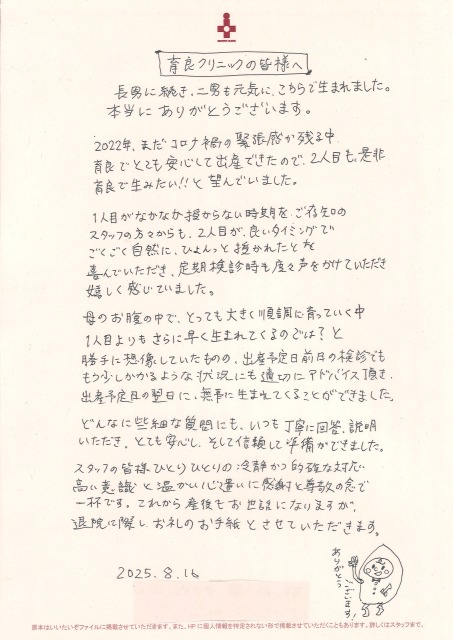 育良クリニックの皆様へ
長男に続き、二男も元気に、こちらで生まれました。
本当にありがとうございます。
2022年、まだコロナ禍の緊張感が残る中
育良でとても安心して出産できたので、2人目も、是非
育良で生みたい!!と望んでいました。
1人目がなかなか授からない時期を、ご存知の
スタッフの方々からも、2人目が、良いタイミングで
ごくごく自然に、ひょんっと授かれたことを
喜んでいただき、定期検診時も度々声をかけていただき
嬉しく感じていました。
母のお腹の中で、とっても大きく順調に育っていく中
1人目よりもさらに早く生まれてくるのでは?と
勝手に想像していたものの、出産予定日前日の検診でも
もう少しかかるような状況にも適切にアドバイス頂き、
出産予定日の翌日に、無事に生まれてくることができました。
どんなに些細な質問にも、いつも丁寧に回答、説明
いただき、とても安心し、そして信頼して準備ができました。
スタッフの皆様ひとりひとりの冷静かつ的確な対応
高い意識と温かい心遣いに感謝と尊敬の念で
一杯です。これから産後もお世話になりますが、
退院に際しお礼のお手紙とさせていただきます。
ありがとう
ございます!
2025.8.16
原本はいいたいぞファイルに掲載させていただきます。また、HPに個人情報を特定されない形で掲載させていただくこともあります。詳しくはスタッフまで。